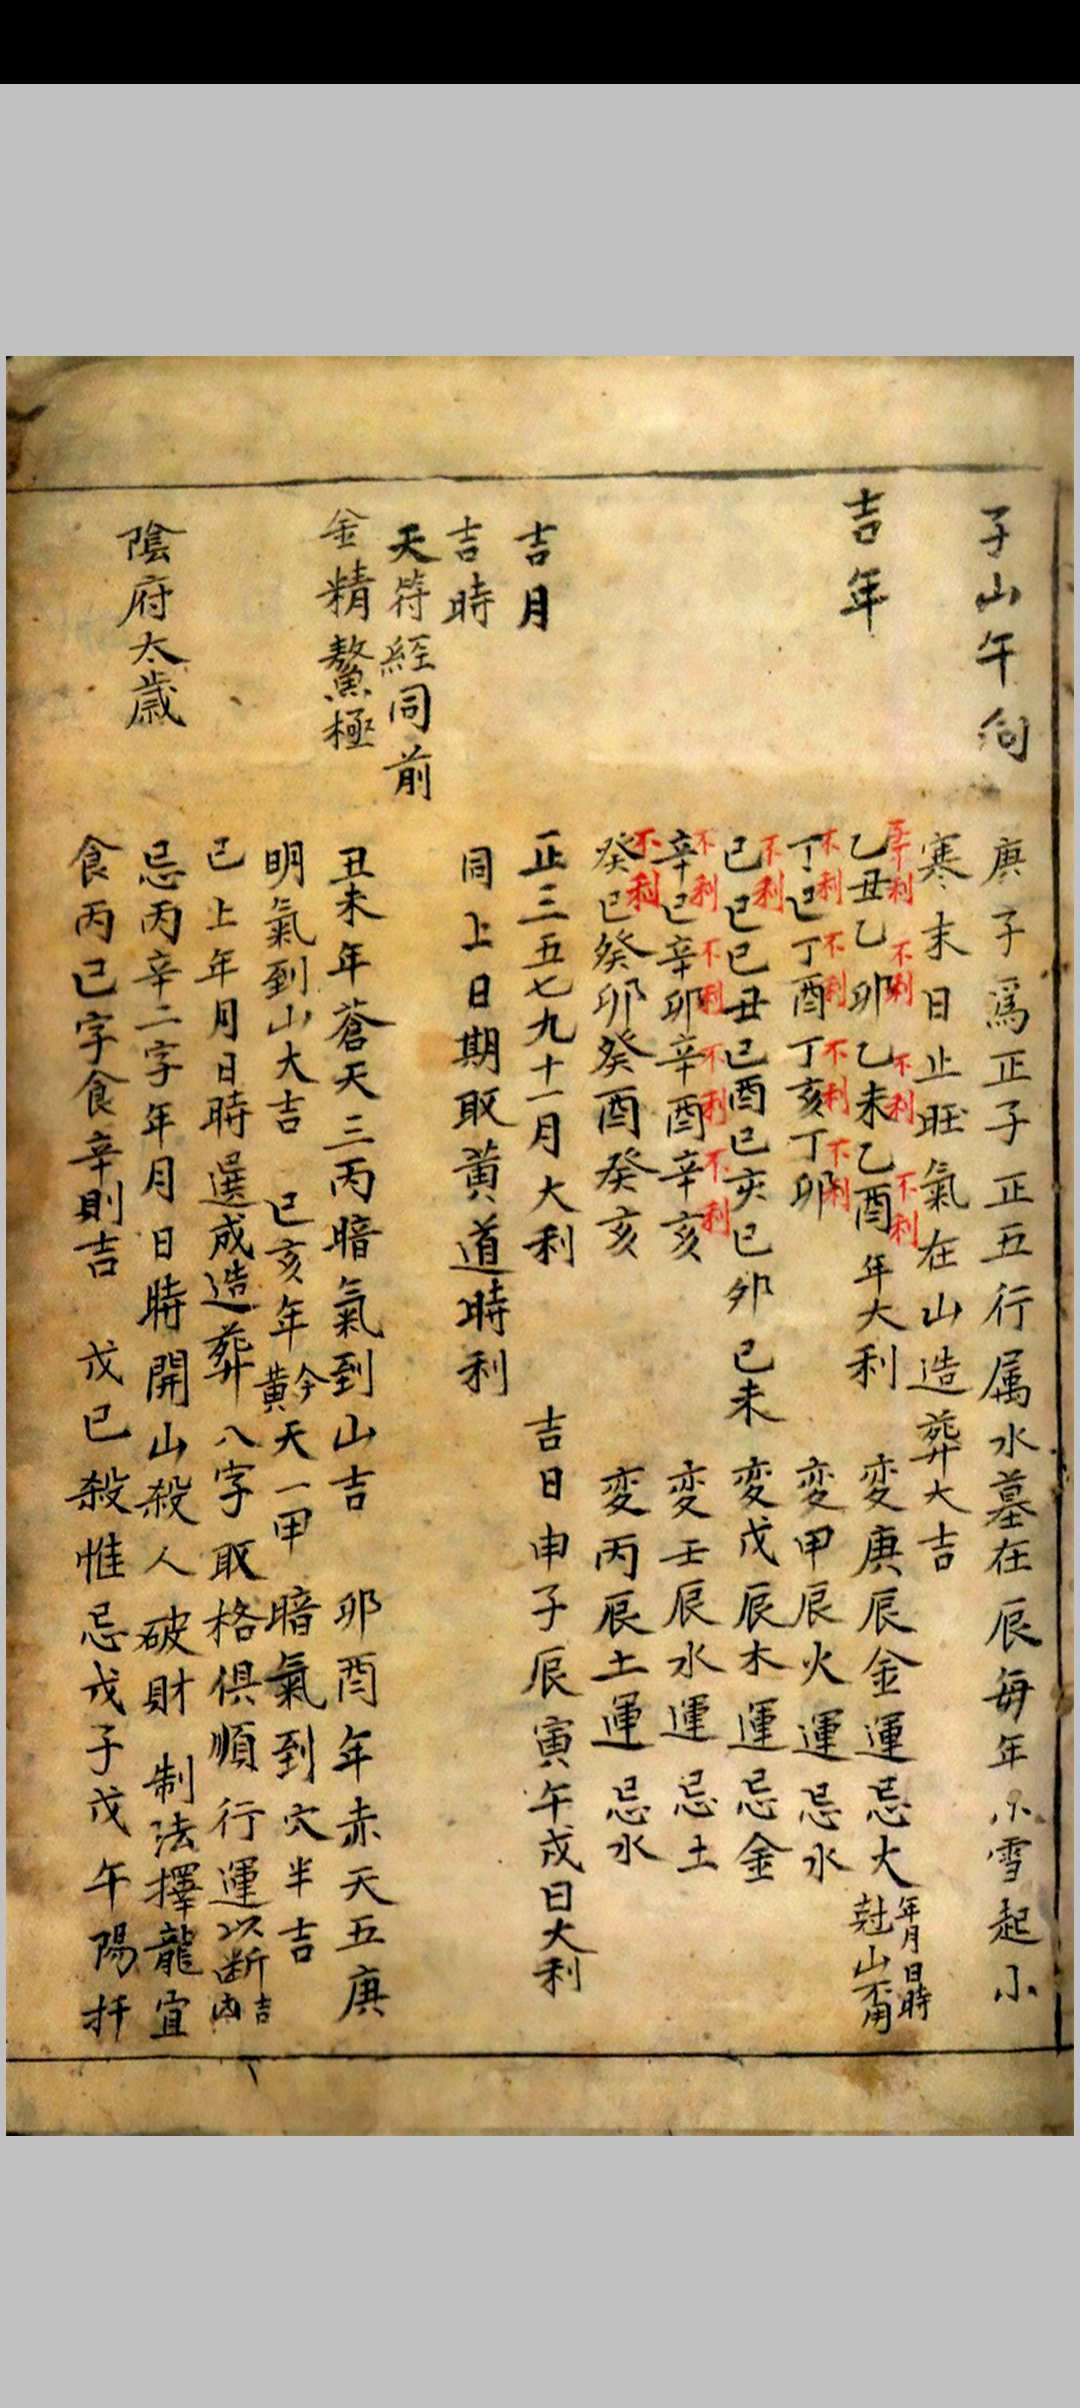 子山午向
庚子爲正子正五行属水墓在辰每年小雪起小
寒末日止旺氣在山造葬大吉
吉年
乙丑乙卯乙未乙酉年大利 変庚辰金運忌火
年月日時
尅山不用
不利 不利 不利 不利
丁巳丁酉丁亥丁卯 変甲辰火運忌水
不利 不利 不利 不利
己巳己丑己酉己亥己卯己未 変戊辰木運忌金
不利
辛巳辛卯辛酉辛亥 変壬辰水運忌土
不利 不利 不利 不利
癸巳癸卯癸酉癸亥 変丙辰土運忌水
不利
吉月
正三五七九十一月大利 吉日申子辰寅午戌日大利
吉時
同上日期取黄道時利
天符經同前
金精鰲極
丑未年蒼天三丙暗氣到山吉 卯酉年赤天五庚
明氣到山大吉 巳亥年黅天一甲 暗氣到穴半吉
已上年月日時選成造葬八字取格俱順行運以断吉凶
陰府太歲
忌丙辛二字年月日時開山殺人破財 制法擇龍宜
食丙己字食辛則吉 戊己殺惟忌戊子戊午陽扦